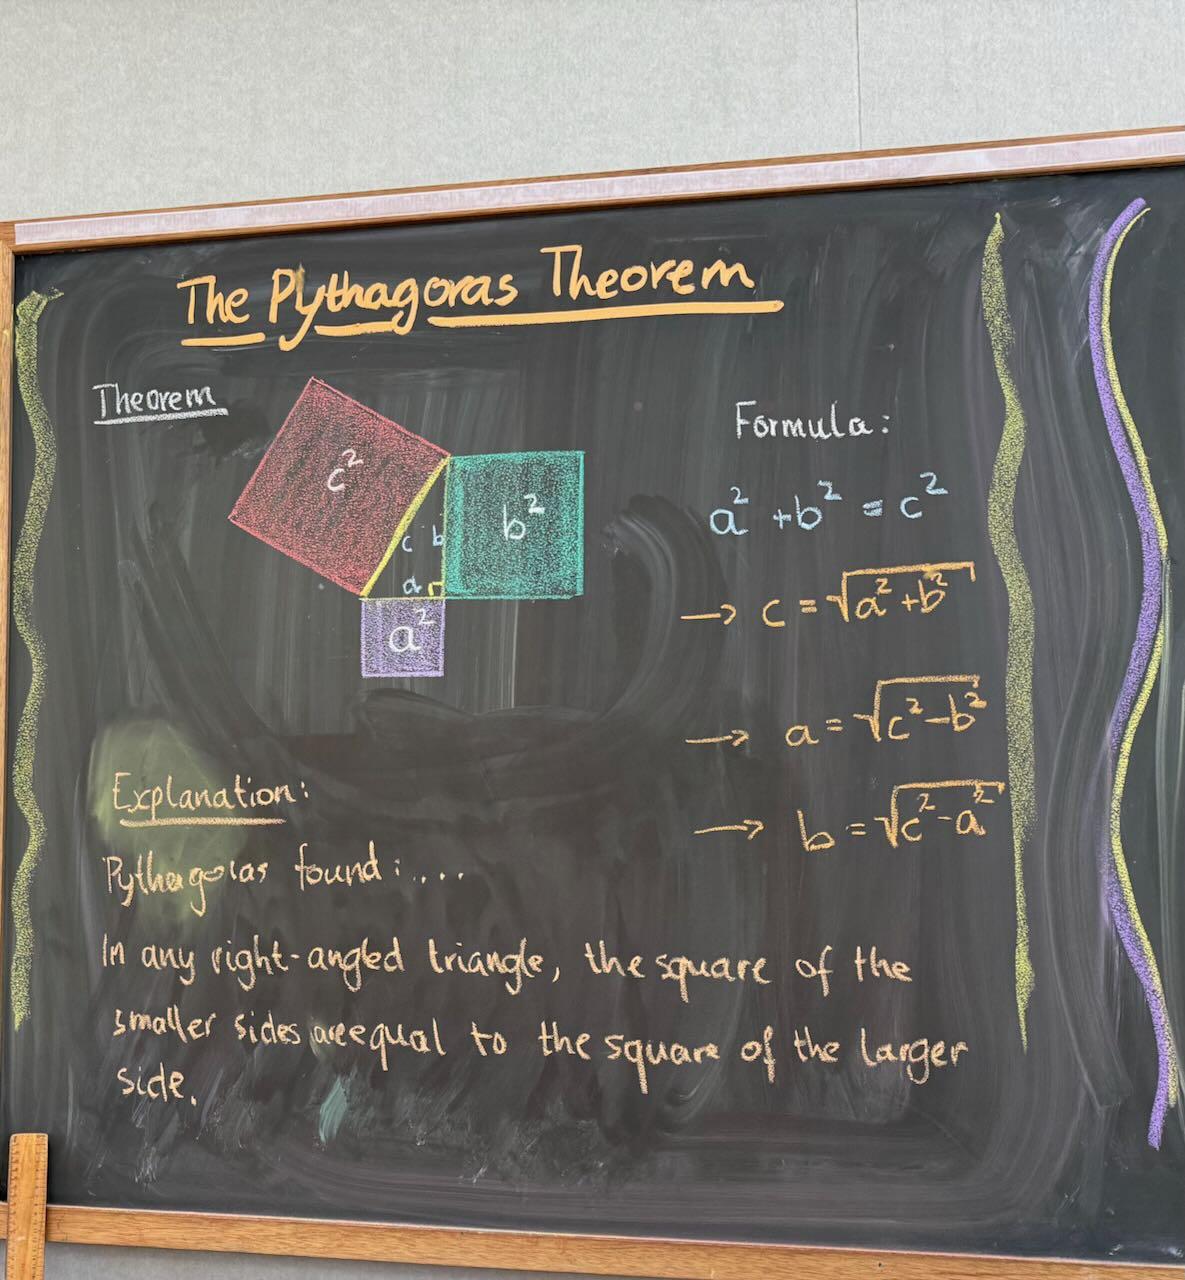 The Pythagoras Theorem
Theorem
c²
b²
c b
a
a²
Formula:
a² + b² = c²
→ c = √a² + b²
→ a = √c² - b²
→ b = √c² - a²
Explanation:
Pythagoras found:...
In any right-angled triangle, the square of the
smaller sides are equal to the square of the larger
side.